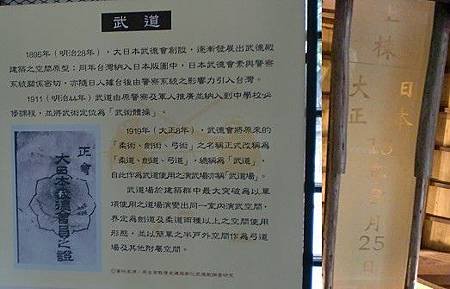 武道
1895年（明治28年），大日本武德會創設，逐漸發展出武德殿
建築之空間原型；同年台灣納入日本版圖中，日本武德會素與警察
系統關係密切，亦隨日人據台後由警察系統之影響力引入台灣。
1911（明治44年）武道由原警察及軍人推廣並納入到中學校必
修課程，並將武術定位為「武術體操」．
1919年（大正8年），武德會將原來的
「柔術、劍術、弓術」之名稱正式改稱為
「柔道、劍道、弓道」，總稱為「武道」，
自此作為武道使用之演武場亦稱「武道場」。
武道場於建築群中最大突破為以單
項使用之道場演變出同一室內演武空間，
界定為劍道及柔道兩種以上之空間使用
形態，並以簡單之半戶外空間作為弓道
場及其他附屬空間。
正會
大日本武德會會員之證
士林
日本
大正
月
25
日